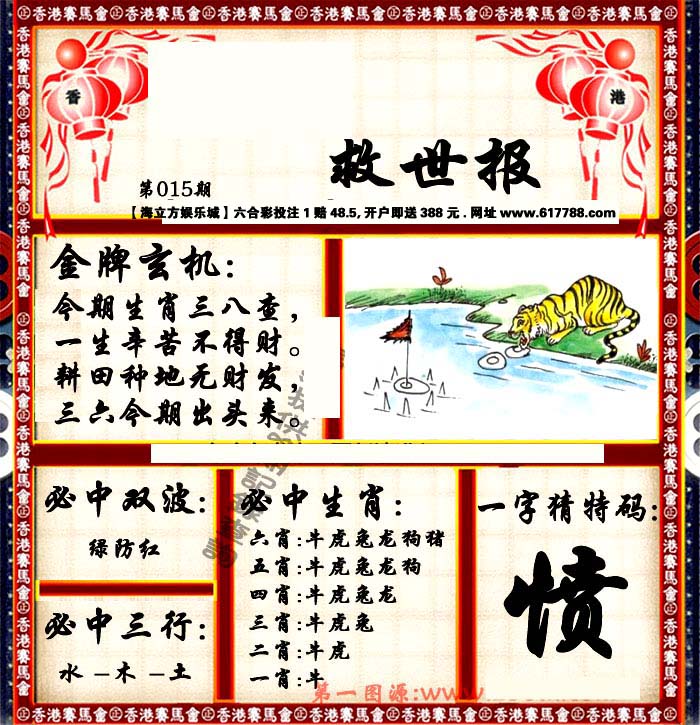 香港賽馬會
香 港
救世报
第015期
【海立方娱乐城】六合彩投注1赔48.5,开户即送388元.网址www.617788.com
金牌玄机:
今期生肖三八查,
一生辛苦不得财。
耕田种地无财发,
三六今期出头来。
必中双波:
绿防红
必中三行:
水-木-土
必中生肖:
六肖:牛虎兔龙狗猪
五肖:牛虎兔龙狗
四肖:牛虎兔龙
三肖:牛虎兔
二肖:牛虎
一肖:牛
一字猜特码:
愤
第一图源:www.